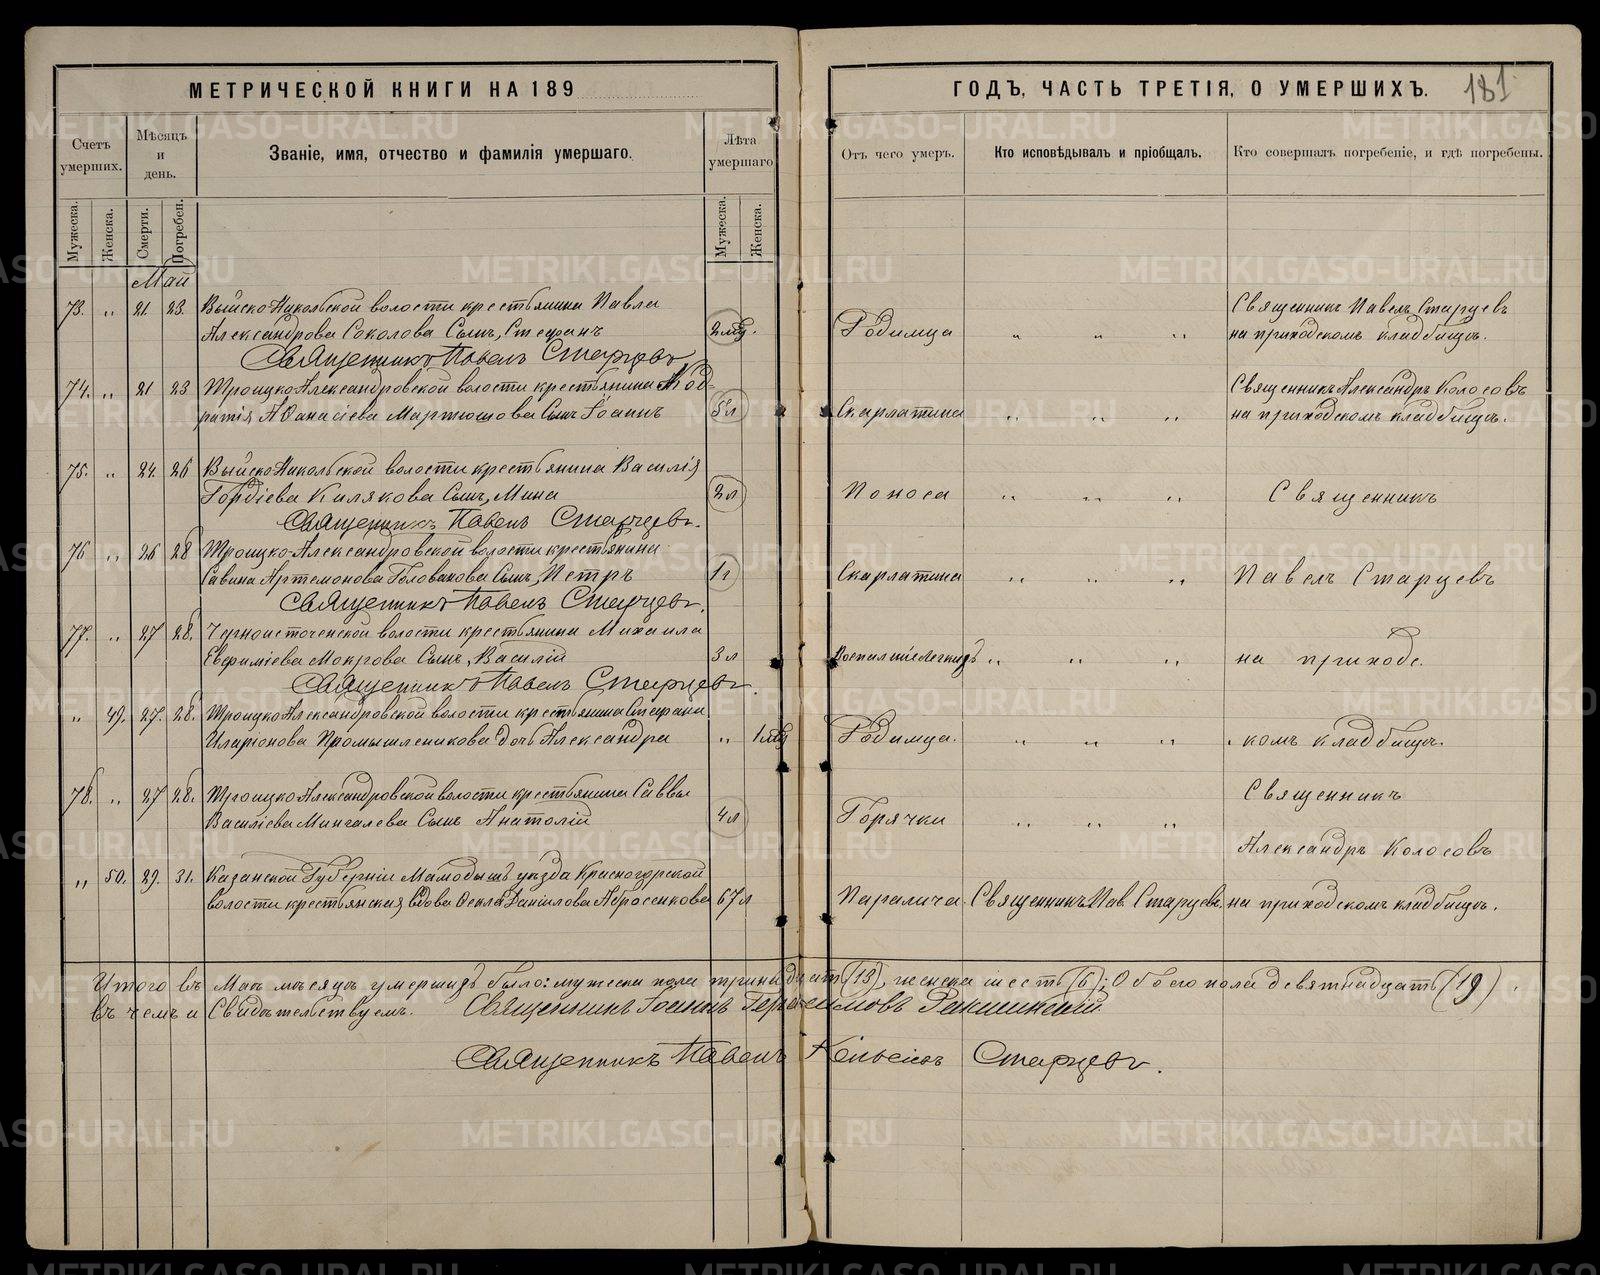 МЕТРИЧЕСКОЙ КНИГИ НА 189
ГОДЪ, ЧАСТЬ ТРЕТІЯ, О УМЕРШИХЪ.
181
Счетъ умерших.
Мѣсяцъ и день.
Званіе, имя, отчество и фамилія умершаго.
Лѣта умершаго
Отъ чего умеръ.
Кто исповѣдывалъ и пріобщалъ.
Кто совершалъ погребеніе, и гдѣ погребены.
Мужеска.
Женска.
Смерти.
Погребен.
Мужеска.
Женска.
Май
73. " 21. 23. Выйско-Никольской волости крестьянина Павла
Александрова Соколова Сынъ, Стефанъ 2 мц. Родимца " " " Священникъ Павелъ Старцевъ
на приходскомъ кладбищѣ.
Священникъ Павелъ Старцевъ
74. " 21 23 Троицко-Александровской волости крестьянина Код-
ратія Аѳанасіева Мартюшова Сынъ Іоаннъ 5 л Скарлатина " " " Священникъ Александръ Колосовъ
на приходскомъ кладбищѣ.
75. " 24. 26 Выйско-Никольской волости крестьянина Василія
Гордіева Килякова Сынъ, Мина 2 л Поноса " " " Священникъ
Священникъ Павелъ Старцевъ.
76 " 26 28 Троицко-Александровской волости крестьянина
Савина Артемонова Голованова Сынъ, Петръ 1 г Скарлатина " " " Павелъ Старцевъ
Священникъ Павелъ Старцевъ.
77. " 27 28. Черноисточенской волости крестьянина Михаила
Евфиміева Мокрова Сынъ, Василій 3 л Воспаленіе Легкихъ " " " на приход-
Священникъ Павелъ Старцевъ.
" 49. 27. 28. Троицко-Александровской волости крестьянина Стефана
Иларіонова Промышленикова дочь Александра " 1 мц Родимца. " " " скомъ кладбищѣ.
78. " 27 28. Троицко-Александровской волости крестьянина Саввы
Василіева Мингалева Сынъ Анатолій 4 л Горячки " " " Священникъ
Александръ Колосовъ
" 50. 29. 31. Казанской Губерніи Мамадышъ уѣзда Красногорской
волости крестьянская вдова Ѳекла Даніилова Абросенкова 67 л Паралича. Священникъ Пав. Старцевъ. на приходскомъ кладбищѣ.
Итого въ Маѣ мѣсяцѣ умершихъ было: мужеска пола тринадцать (13), женска шесть (6); Обоего пола девятнадцать (19).
въ чемъ и Свидѣтельствуемъ. Священникъ Іоаннъ Герасимовъ
Священникъ Павелъ Старцевъ.
METRIKI.GASO-URAL.RU